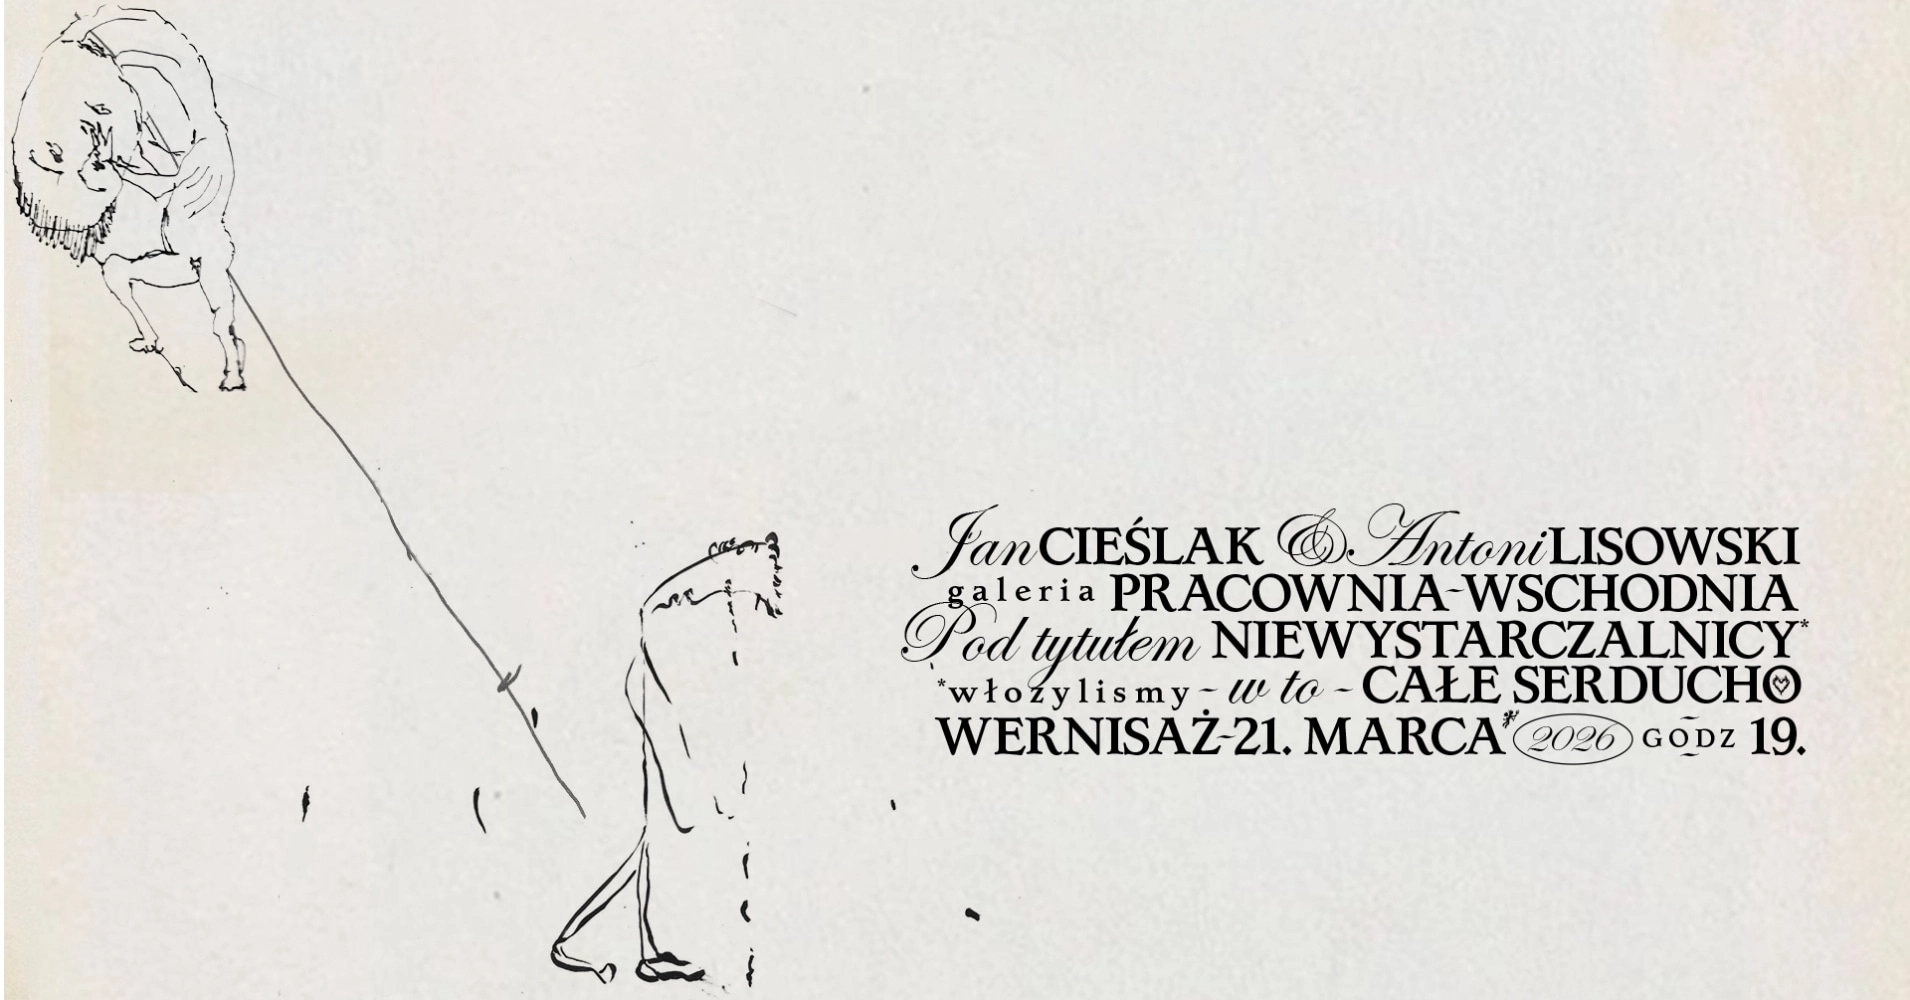 Jan CIEŚLAK & Antoni LISOWSKI
galeria PRACOWNIA-WSCHODNIA
Pod tytułem NIEWYSTARCZALNICY*
*włożylismy - w to - CAŁE SERDUCHO
WERNISAŻ-21. MARCA* 2026 GODZ 19.